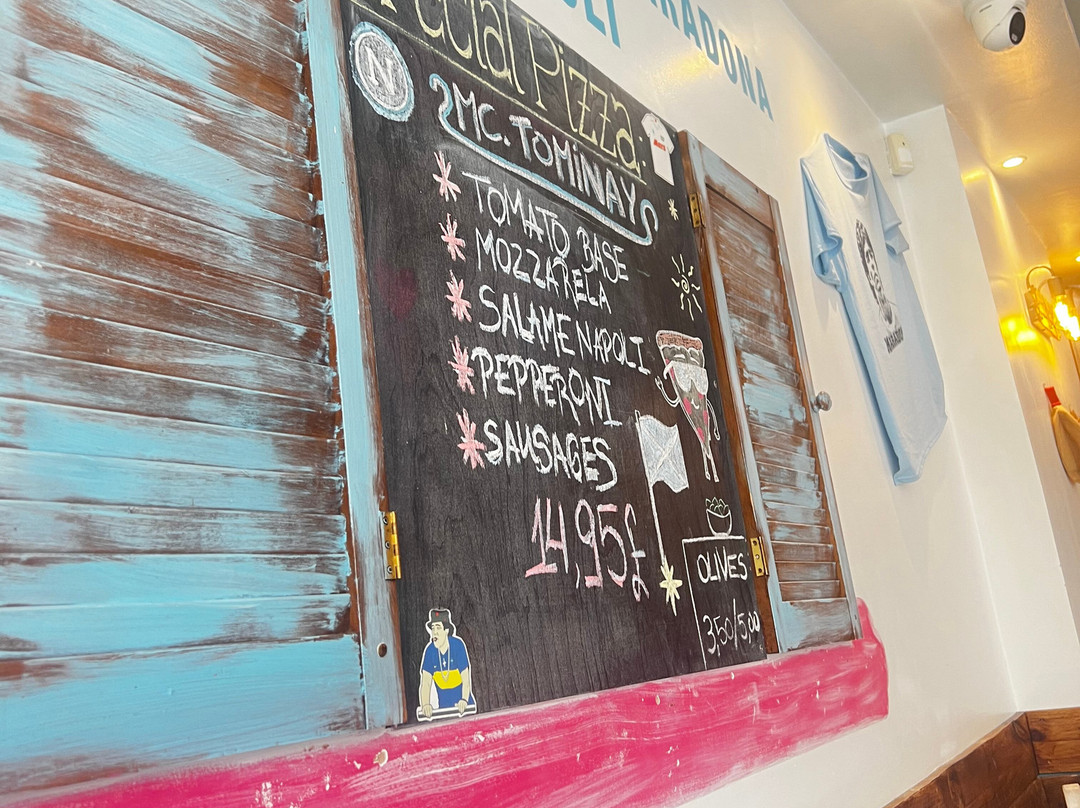 ARADONA
Pizza:
N
MC. TOMINAY
TOMATO BASE
MOZZARELA
SALAME NAPOLI
PEPPERONI
SAUSAGES
14,95£
OLIVES
3,50/5,00